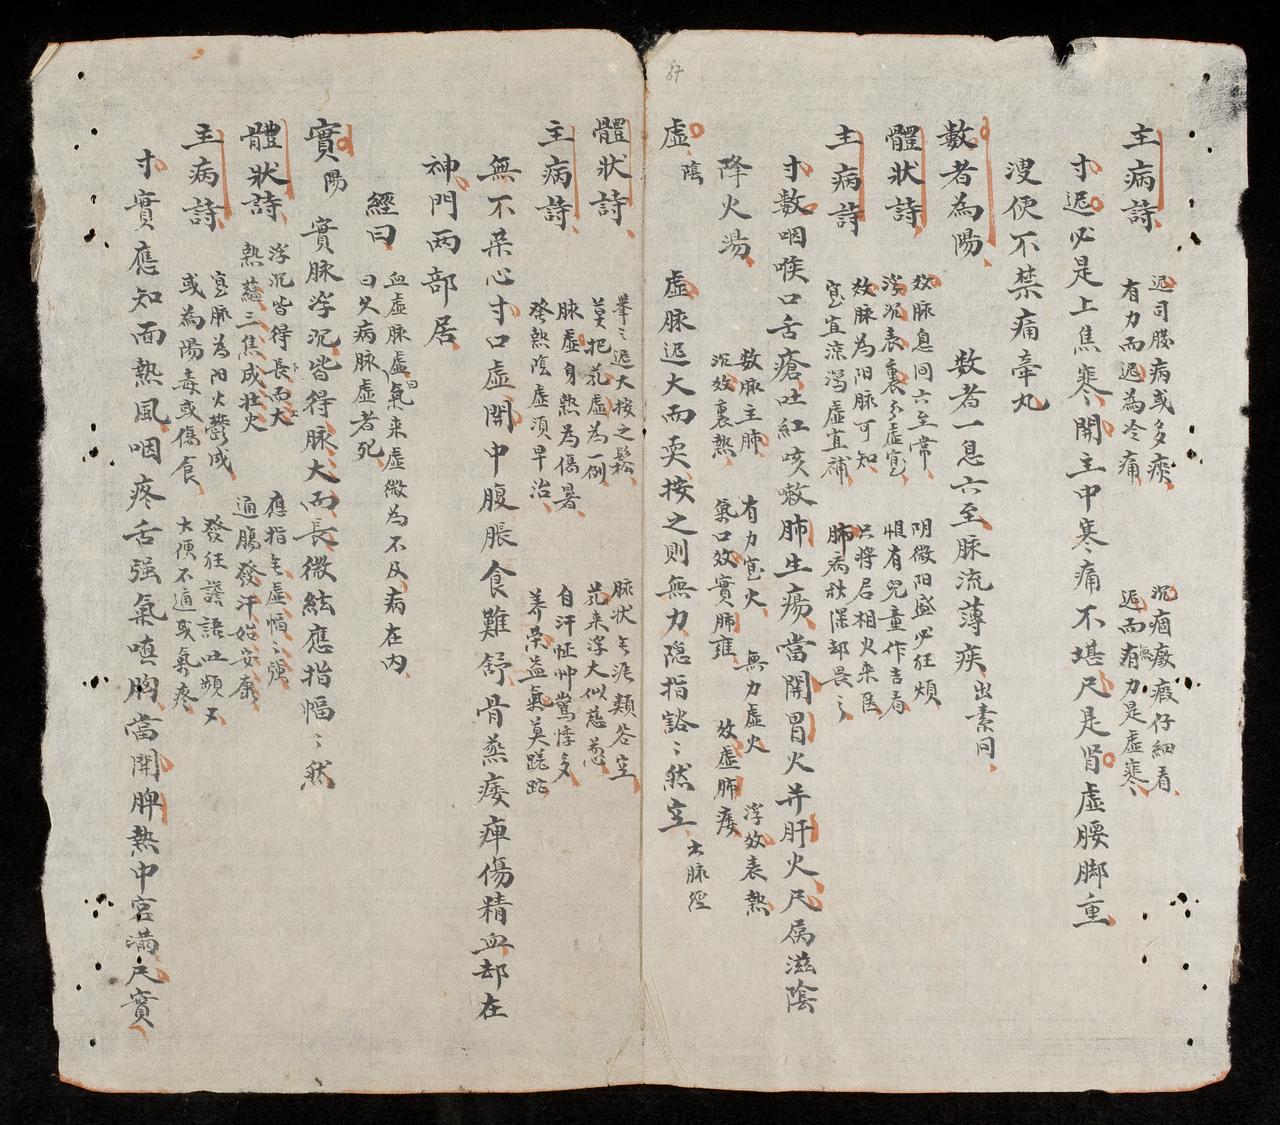 主病詩 遲司臟病或多痰 沉痼癥瘕仔細看
有力而遲為冷痛 遲而無力是虛寒
寸遲必是上焦寒関主中寒痛不堪尺是腎虛腰脚重
溲便不禁痛牽丸
數者為陽 数者一息六至脉流薄疾 出素问
體狀詩 效脉息间六至常 阴微阳盛必狂煩
浮沉表裏分虛实 惟有兒童作吉看
主病詩 效脉为阳脉可知 只將君相火来医
实宜凉瀉虛宜補 肺病秋深却畏之
寸數咽喉口舌瘡吐紅咳嗽肺生瘍當関胃火并肝火尺属滋陰
降火湯 数脉主肺 有力实火 無力虛火 浮效表熱
沉效裏熱 氣口效實肺雍 效虛肺痿
虛 隂 虛脉迟大而耎按之則無力隐指谿〻然空 出脉經
體狀詩 舉〻迟大按之鬆 脉状无涯類谷空
莫把芤虛為一例 芤来浮大似慈葱
主病詩 脉虛身熱為傷暑 自汗怔忡驚悸多
發熱隂虛須早治 养榮益氣莫蹉跎
無不榮心寸口虛関中腹脹食難舒骨蒸痿痺傷精血却在
神門两部居
經曰 血虛脉虛 曰氣来虛微為不及病在内
曰久病脉虛者死
實 陽 實脉浮沉皆得脉大而長微絃應指愊〻然
體狀詩 浮沉皆得長而大 應指无虛愊〻强
熱蘊三焦成壮火 通腸發汗始安康
主病詩 实脉为阳火鬱成 發狂譫語吐頻〻
或為陽毒或傷食 大便不通或氣疼
寸實應知面熱風咽疼舌强氣嗔胸當関脾熱中宮滿尺實